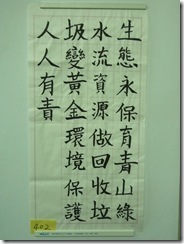 生態永保育青山綠
水流資源做回收垃
圾變黃金環境保護
人人有責
402